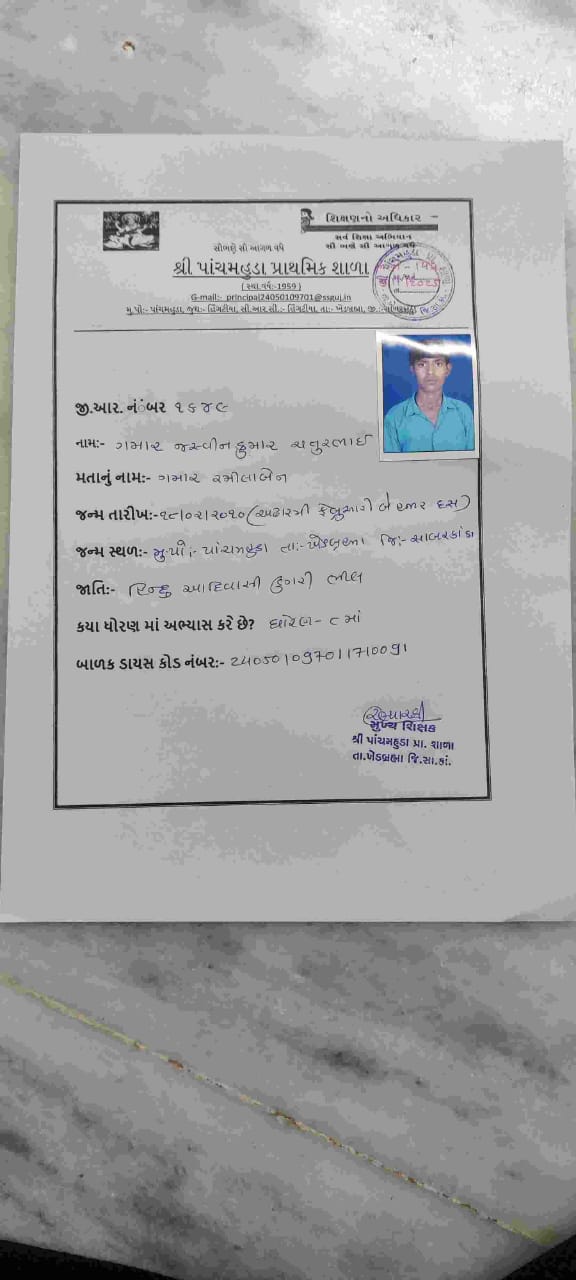 શિક્ષણનો અધિકાર
સર્વ શિક્ષા અભિયાન
સૌ ભણે સૌ આગળ વધે
સૌભણે સૌ આગળ વધે
શ્રી પાંચમહુડા પ્રાથમિક શાળા
( સ્થા વર્ષ:-1959 )
G-mail:- principal24050109701@ssguj.in
મુ.પો:- પાંચમહુડા, જુથ:- હિંગટીયા, સી.આર.સી.:- હિંગટીયા, તા:- ખેડબ્રહ્મા, જી.:-
જી.આર. નંબર ૧૬૪૯
નામ:- ગમાર જસ્વીનકુમાર ચતુરભાઈ
મતાનું નામ:- ગમાર રમીલાબેન
જન્મ તારીખ:-૧૮/૦૨/૨૦૧૦ (અઢારમી ફેબ્રુઆરી બે હજાર દસ)
જન્મ સ્થળ:- મુ.પો:- પાંચમહુડા તા:- ખેડબ્રહ્મા જિ:- સાબરકાંઠા
જાતિ:- હિન્દુ આદિવાસી ડુંગરી ભીલ
કયા ધોરણ માં અભ્યાસ કરે છે? ધોરણ- ૮ માં
બાળક ડાયસ કોડ નંબર:- 240501097011710091
મુખ્ય શિક્ષક
શ્રી પાંચમહુડા પ્રા. શાળા
તા.ખેડબ્રહ્મા જિ.સા.કાં.